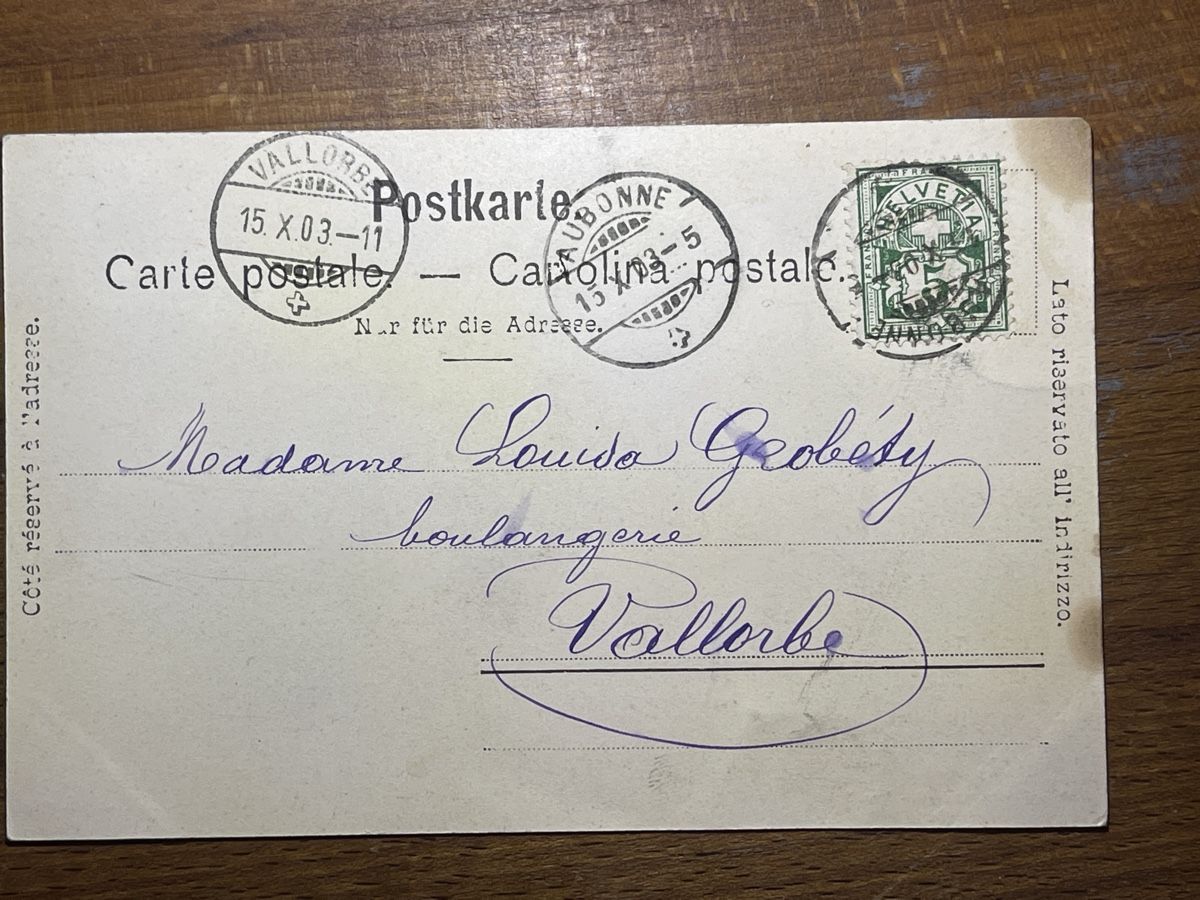 VALLORBE
15.X.03.–11
Postkarte.
AUBONNE
15.X.03–5
Carte postale. — Cartolina postale.
Nur für die Adresse.
FRANCO
HELVETIA
5
AUBONNE
Côté réservé à l'adresse.
Lato riservato all' indirizzo.
Madame Louisa Grobéty
boulangerie
Vallorbe